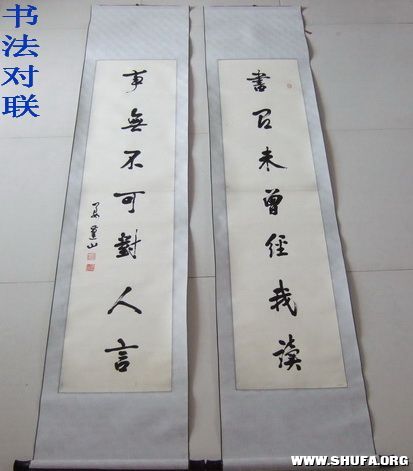 书法对联
書有未曾經我讀
事無不可對人言
WWW.SHUFA.ORG